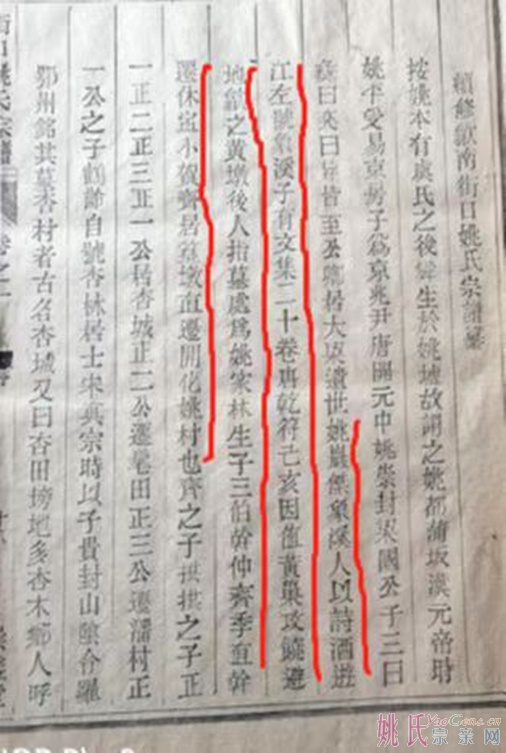 續修歙南街口姚氏宗譜
按姚本有虞氏之後舜生於姚墟故謂之姚都蒲坂漢元帝時
姚平受易京房子為京兆尹唐開元中姚崇封梁國公子三曰
彝曰奕曰 皆至公卿居大 遺世姚巖傑象溪人以詩酒遊
江左號 溪子有文集二十卷唐乾符己亥因值黃巢攻饒避
地歙之黃墩後人指墓處為姚家林生子三伯幹仲齊季直幹
遷休寧小賀齊居篁墩直遷開化姚村也齊之子拱拱之子正
一正二正三正一公居杏城正二公遷 田正三公遷潘村正
一公之子鶴齡自號杏林居士宋真宗時以子貴封山陰令羅
鄂州銘其墓杏村者古名杏城又曰杏田塝地多杏木鄉人呼
口姚氏宗譜
卷之
姚氏宗亲网
YaoGens.cn